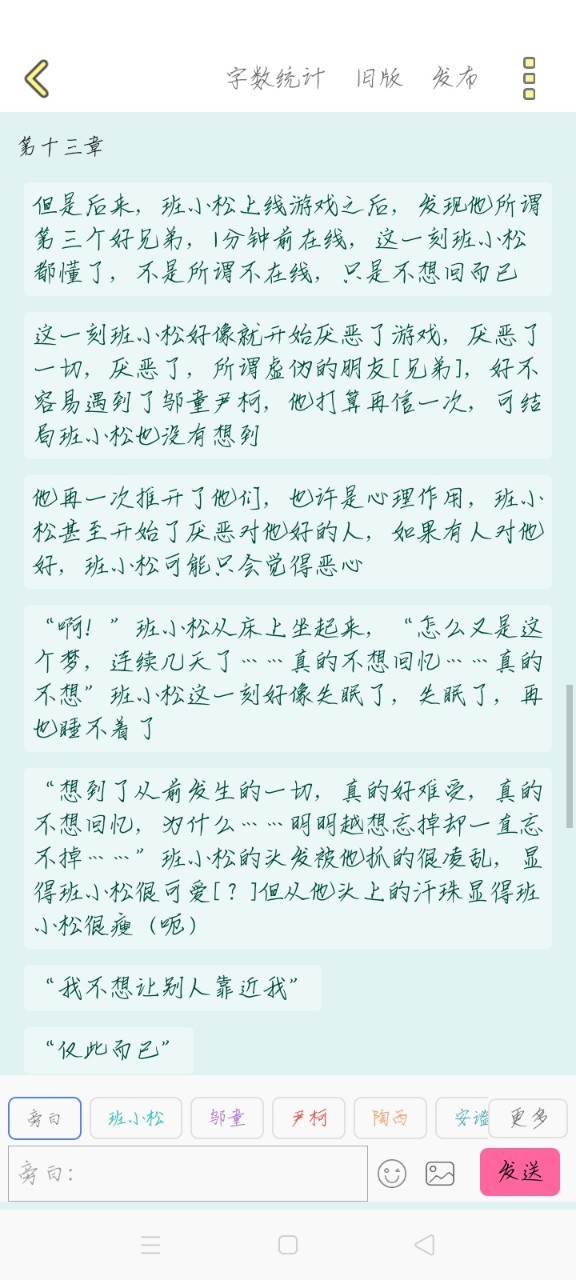 字数统计 旧版 发布
第十三章
但是后来，班小松上线游戏之后，发现他所谓
第三个好兄弟，1分钟前在线，这一刻班小松
都懂了，不是所谓不在线，只是不想回而已
这一刻班小松好像就开始厌恶了游戏，厌恶了
一切，厌恶了，所谓虚伪的朋友[兄弟]，好不
容易遇到了邬童尹柯，他打算再信一次，可结
局班小松也没有想到
他再一次推开了他们，也许是心理作用，班小
松甚至开始了厌恶对他好的人，如果有人对他
好，班小松可能只会觉得恶心
“啊！”班小松从床上坐起来，“怎么又是这
个梦，连续几天了……真的不想回忆……真的
不想”班小松这一刻好像失眠了，失眠了，再
也睡不着了
“想到了从前发生的一切，真的好难受，真的
不想回忆，为什么……明明越想忘掉却一直忘
不掉……”班小松的头发被他抓的很凌乱，显
得班小松很可爱[？]但从他头上的汗珠显得班
小松很瘦（呃）
“我不想让别人靠近我”
“仅此而已”
旁白 班小松 邬童 尹柯 陶西 安谧 更多
旁白： 发送